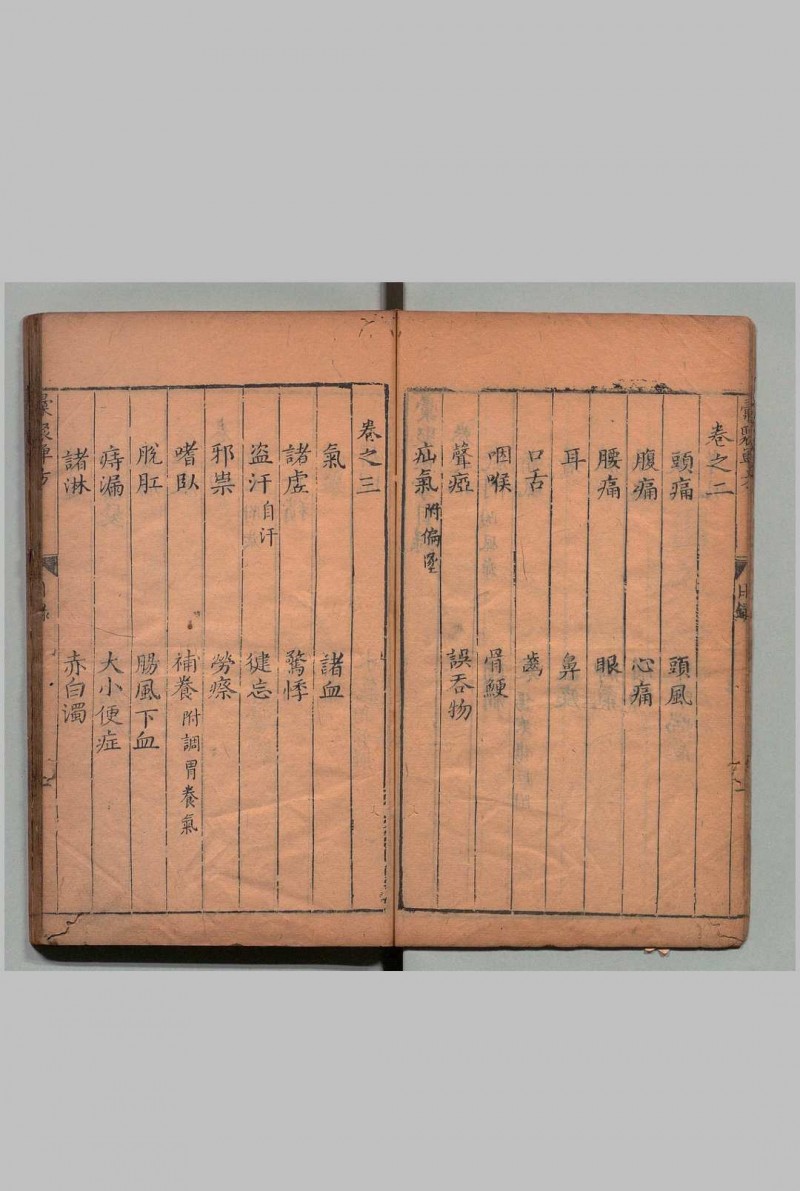 卷之二
頭痛 頭風
腹痛 心痛
腰痛 眼
耳 鼻
口舌 齒
咽喉 骨鯁
聲瘂 誤吞物
疝氣 附偏墜
卷之三
氣 諸血
諸虛 驚悸
盗汗 自汗 健忘
邪祟 勞瘵
嗜臥 補養 附調胃養氣
脫肛 腸風下血
痔漏 大小便症
諸淋 赤白濁